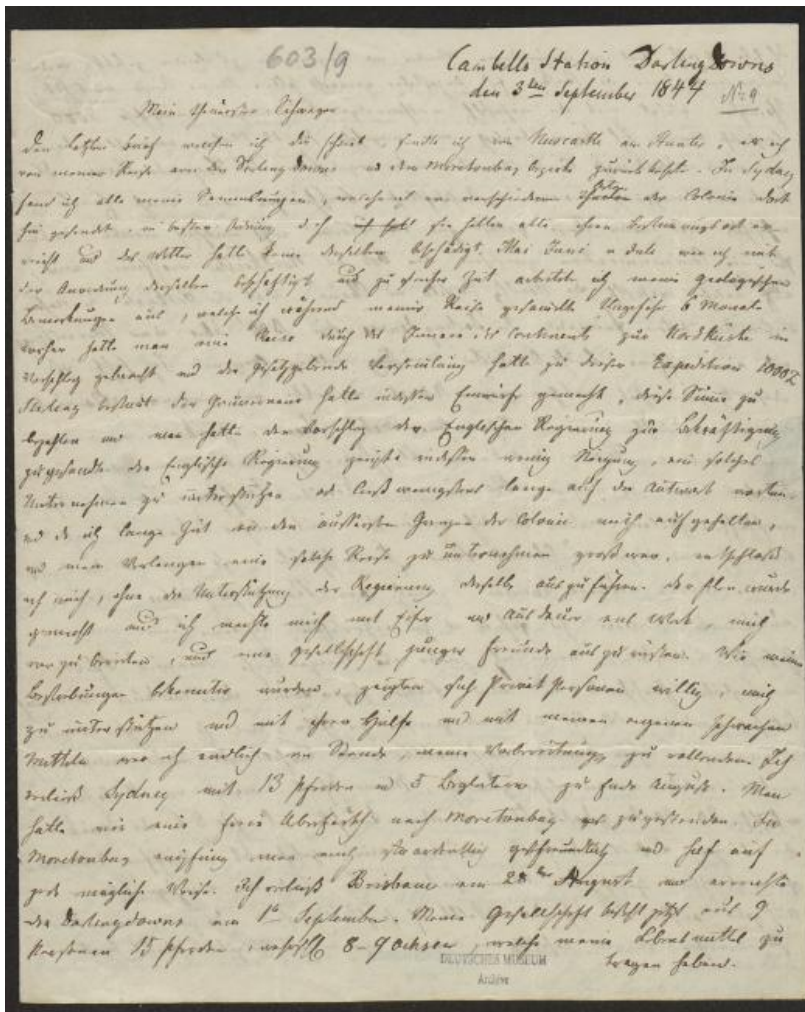 603/9
Cambells Station Darling Downs
den 3ten September 1844
No 9
Mein theuerster Schwager
Den letzten Brief welchen ich Dir schrieb, sandte ich von Newcastle am Hunter, als ich
von meiner Reise von den Darling Downs und dem Moretonbay zurückkehrte. In Sydney
fand ich alle meine Sammlungen, welche ich von verschiedenen Theilen der Colonie dort
hin gesendet, in bester Ordnung, sie hatten alle ihren Bestimmungsort er-
reicht und das Wetter hatte keine derselben beschädigt. Mai Juni u Juli war ich mit
der Anordnung derselben beschäftigt und zu gleicher Zeit arbeitete ich meine geologischen
Bemerkungen aus, welche ich während meiner Reise gesammelt. Ungefähr 6 Monate
vorher hatte man eine Reise durch das Innere des Continents zur Nordküste in
Vorschlag gebracht und die gesetzgebende Versammlung hatte zu dieser Expedition 1000£
Sterling bestimmt der Gouverneur hatte indessen Einwürfe gemacht, diese Summe zu
bezahlen und man hatte den Vorschlag der Englischen Regierung zur Bekräftigung
zugesandt. die Englische Regierung zeigte indessen wenig Neigung, ein solches
Unternehmen zu unterstützen od. ließ wenigstens lange auf die Antwort warten.
und da ich lange Zeit an den äussersten Grenzen der Colonie mich aufgehalten,
und mein Verlangen eine solche Reise zu unternehmen groß war, entschloß
ich mich, ohne die Unterstützung der Regierung dieselbe auszuführen. Der Plan wurde
gemacht und ich machte mich mit Eifer und Ausdauer ans Werk, mich
vorzubereiten, und eine Gesellschaft junger Freunde auszurüsten. Wie meine
Bestrebungen bekannter wurden, zeigten sich Privat Personen willig, mich
zu unterstützen und mit ihrer Hülfe und mit meinen eigenen schwachen
Mitteln war ich endlich im Stande, meine Vorbereitungen zu vollenden. Ich
verließ Sydney mit 13 Pferden u 5 Begleitern zu Ende August. Man
hatte mir eine freie Überfarth nach Moretonbay zugestanden. In
Moretonbay empfing man mich freundlich und half auf
jede mögliche Weise. Ich verließ Brisbane am 28ten August und erreichte
die Darlingdowns am 1t September. Meine Gesellschaft besteht jetzt aus 9
Personen 15 Pferden, 8-9 Ochsen, welche meine Lebensmittel zu
tragen haben.
DEUTSCHES MUSEUM
Archiv